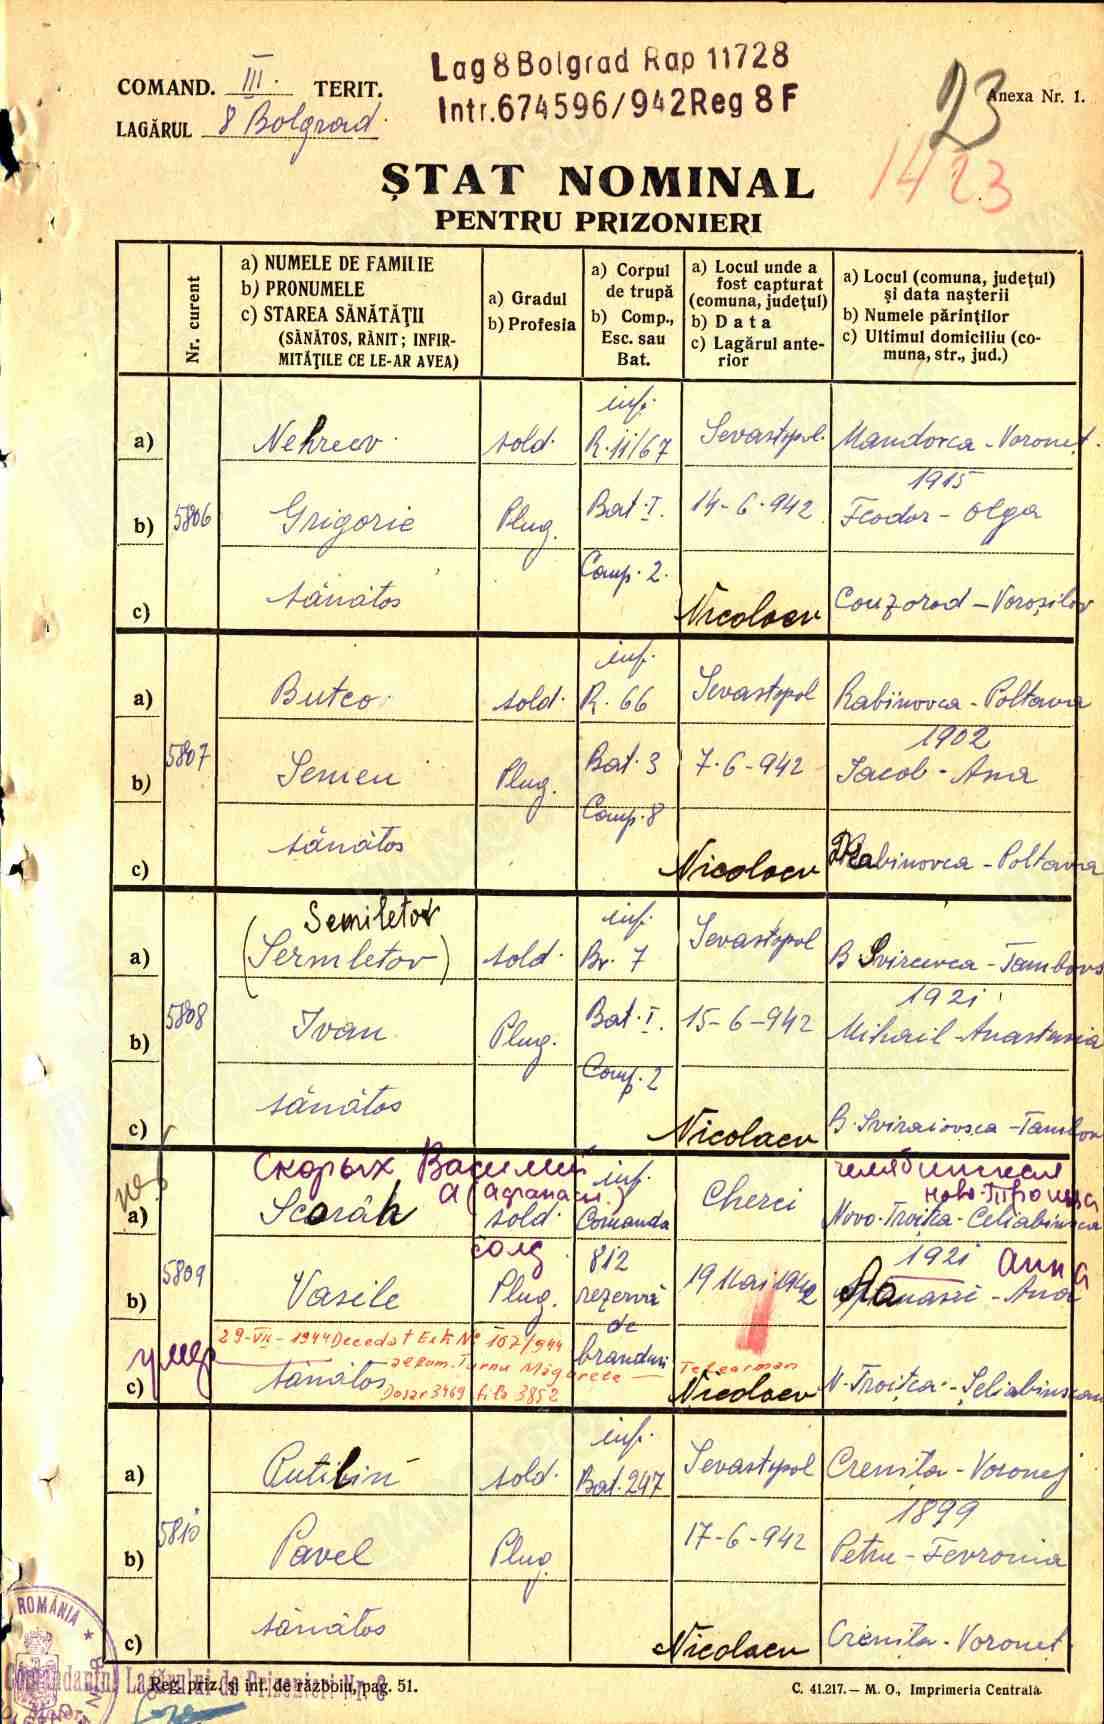 COMAND. III. TERIT.
LAGĂRUL 8 Bolgrad.
Lag 8 Bolgrad Rap 11728
Intr. 674596/942 Reg 8 F
Anexa Nr. 1.
23
14 23
ȘTAT NOMINAL
PENTRU PRIZONIERI
Nr. curent
a) NUMELE DE FAMILIE
b) PRONUMELE
c) STAREA SĂNĂTĂŢII
(SĂNĂTOS, RĂNIT; INFIR-
MITĂŢILE CE LE-AR AVEA)
a) Gradul
b) Profesia
a) Corpul
de trupă
b) Comp.,
Esc. sau
Bat.
a) Locul unde a
fost capturat
(comuna, judeţul)
b) Data
c) Lagărul ante-
rior
a) Locul (comuna, judeţul)
şi data naşterii
b) Numele părinţilor
c) Ultimul domiciliu (co-
muna, str., jud.)
inf.
a) Nehreev. sold. R. 11/67 Sevastopol. Mandovca - Voroneţ.
1915
5806
b) Grigorie Plug. Bat. I. 14-6-942 Feodor - Olga
Comp. 2.
c) sănătos Nicolaev Couzorod - Voroşilov
inf.
a) Butco. sold. R. 66 Sevastopol Rabinovca - Poltava
1902
5807
b) Semen Plug. Bat. 3 7-6-942 Iacob - Ana
Comp. 8
c) sănătos Nicolaev Rabinovca - Poltava
Semiletov
inf.
a) (Sermletov) sold. Br. 7 Sevastopol B Svircevca - Tambov
1921
5808
b) Ivan Plug. Bat. I. 15-6-942 Mihail - Anastasia
Comp. 2
c) sănătos Nicolaev B. Sviraiovsca - Tambov
Скорых Василий
А (Афанаси.)
inf.
Ново-Троицка
a) Scorâh sold. Comanda Cherci Novo-Troiţka - Celiabinsca
солд.
812
1921 Анна
5809
b) Vasile Plug. rezervă 19 Mai 1942 Afanasii - Ana
de
29-VII-1944 Decedat Ext No 167/944
branduri
de com. Turnu Măgurele - Teleorman
умер
c) sănătos Dosar 3469 fila 3852 Nicolaev N-Troiţca - Şeliabinscaia
inf.
a) Putilin sold. Bat. 247 Sevastopol Creniţa - Voronej
1899
5810
b) Pavel Plug 17-6-942 Petru - Fevronia
c) sănătos Nicolaev Creniţa - Voroneţ.
ROMÂNIA
Comandantul Lagărului de Prizonieri Nr. 8
Reg. priz. şi int. de războiu, pag. 51.
C. 41.217. — M. O., Imprimeria Centrală.